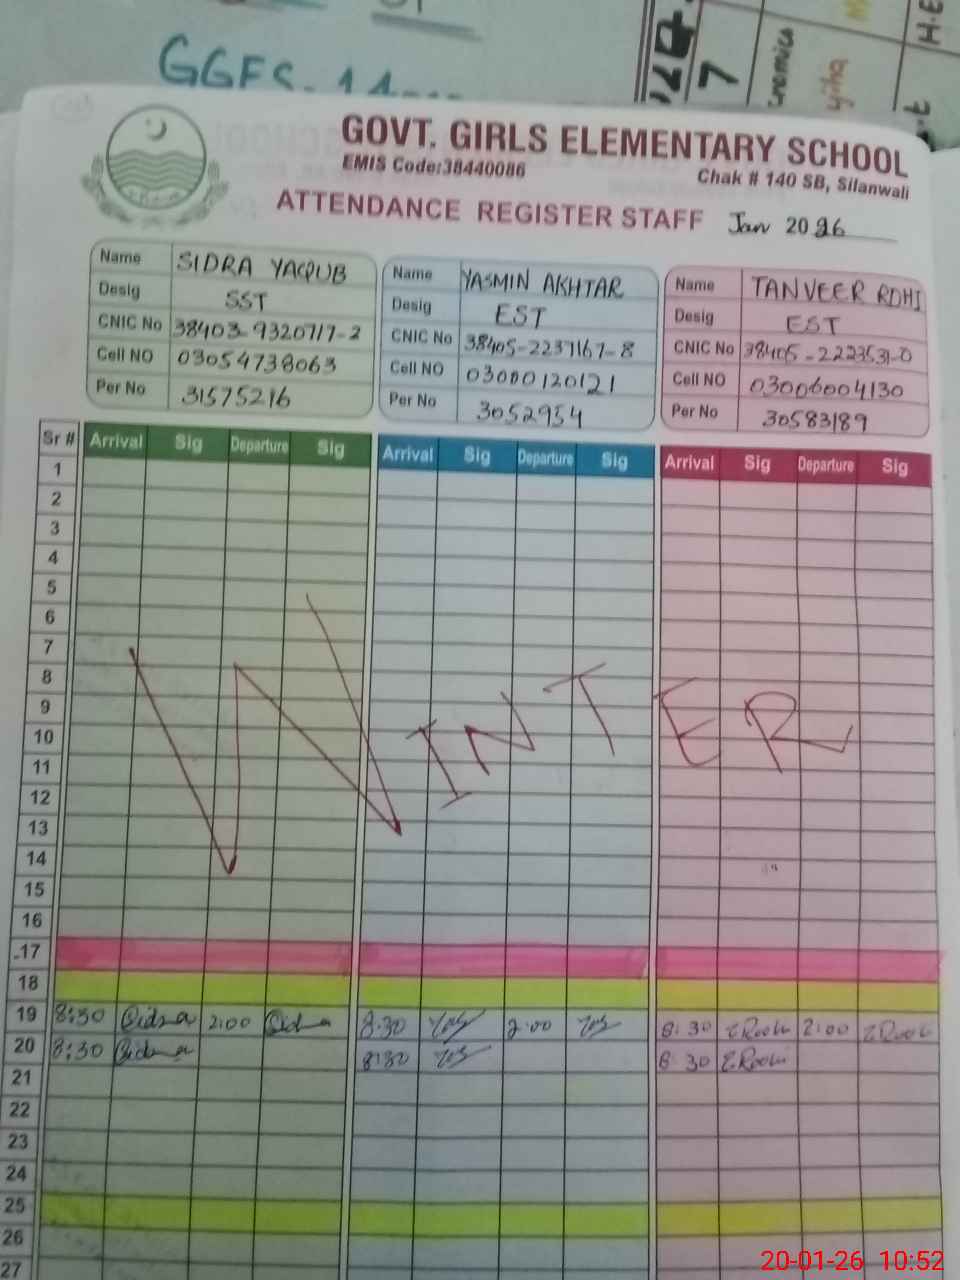 GGES-14
7
GOVT. GIRLS ELEMENTARY SCHOOL
EMIS Code:38440086
Chak # 140 SB, Silanwali
ATTENDANCE REGISTER STAFF Jan 2026
Name SIDRA YAQUB
Desig SST
CNIC No 38403-9320717-2
Cell NO 03054738063
Per No 31575216
Name YASMIN AKHTAR
Desig EST
CNIC No 38405-2237167-8
Cell NO 03000120121
Per No 3052954
Name TANVEER ROHI
Desig EST
CNIC No 38405-2223531-0
Cell NO 03006004130
Per No 30583189
Sr # Arrival Sig Departure Sig Arrival Sig Departure Sig Arrival Sig Departure Sig
1
2
3
4
5
6
7
8
9
10
11
12
13
14
15
16
WINTER
17
18
19 8:30 Sidra 2:00 Sidra 8:30 Yas 2:00 Yas 8:30 T.Roohi 2:00 T.Roohi
20 8:30 Sidra 8:30 Yas 8:30 T.Roohi
21
22
23
24
25
26
27
20-01-26 10:52